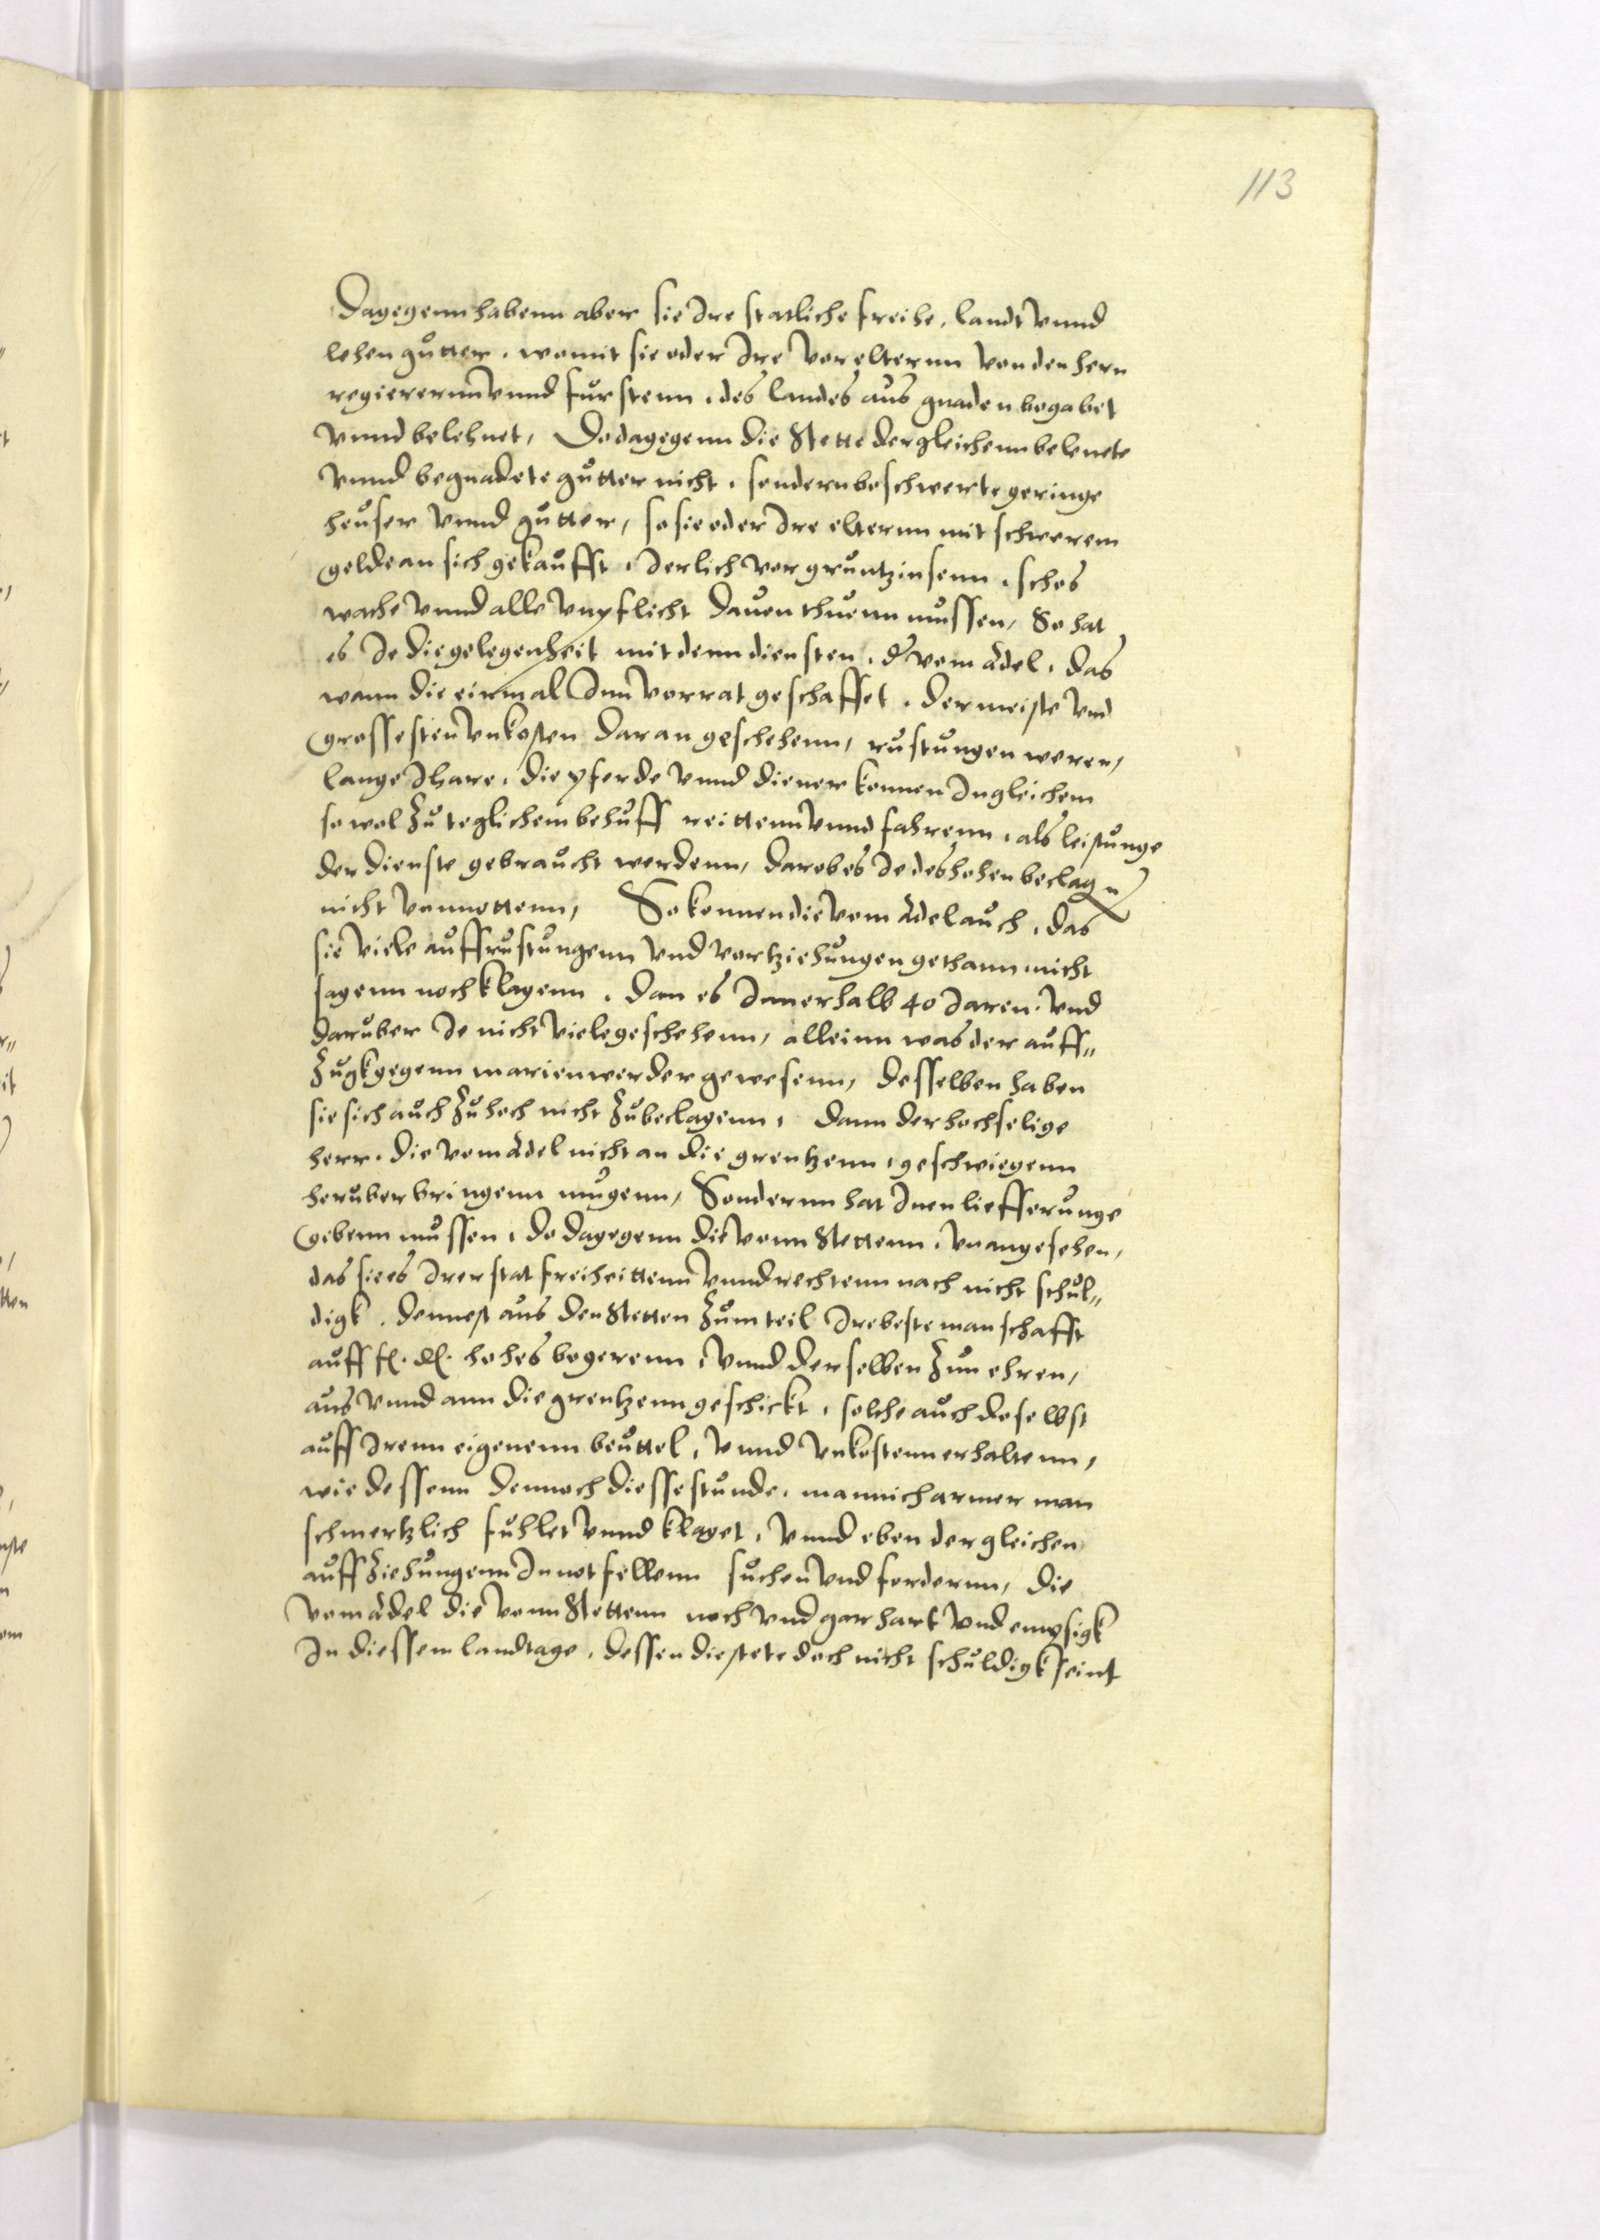 113
Dagegenn habenn aber sie Ire statliche freihe, landt vnnd
lehen gutter, womit sie oder Ire vorelternn von den hern
regierernn vnnd furstenn, des landes aus gnaden begabet
vnnd belehnet, Do dagegenn die Stette dergleichenn belenete
vnnd begnadete gutter nicht, sondern beschwerte geringe
heuser vnnd gutter, so sie oder Ire elternn mit schwerem
gelde an sich gekaufft, Jerlich vorgruntzinsenn, schos
wache vnnd alle vnpflicht dauon thuenn mussen, So hat
es Je die gelegenheit mit denn diensten, d' vom Adel, das
wann die einmal Inn vorrat geschaffet, der meiste vnd
grossesten vnkosten daran geschehenn, rustungen weren,
lange Jhare, die pferde vnnd diener konnen Ingleichem
so wol zu teglichem behuff reittenn vnnd fahrenn, als leistunge
der dienste gebraucht werdenn, darob es Je des hohen beclagn
nicht vonnottenn, So konnen die vom Adel auch, das
sie viele auffrustungenn vnd vortziehungen gethann nicht
sagenn noch klagenn, dan es Innerhalb 40 Jaren vnd
daruber Je nicht viele geschehenn, alleinn was der auff=
zugk gegenn marienwerder gewesenn, desselben haben
sie sich auch zu hoch nicht zubeclagenn, dann der hochselige
herr, die vom Adel nicht an die grentzenn, geschwiegenn
heruber bringenn mugenn, Sondernn hat Inen liefferunge
gebenn mussen, do dagegenn die vonn Stettenn, vnangesehen,
das sie es Irer stat freiheittenn vnnd rechtenn nach nicht schul=
digk, dennost aus den Stetten zum teil Ire beste manschafft
auff f. d. hohes begerenn, vnnd derselben zun ehren,
aus vnnd ann die grentzenn geschickt, solche auch doselbst
auff Irenn eigenenn beuttel, vnnd vnkostenn erhaltenn,
wie dessenn dennoch diesse stunde, mannich armer man
schmertzlich fuhlet vnnd klaget, vnnd eben dergleichen
auffziehungenn In notfellenn suchen vnd fordernn, die
vom Adel die vonn Stettenn noch vnd gar hart vnd empsigk
In diessem landtage, dessen die stete doch nicht schuldigk seint